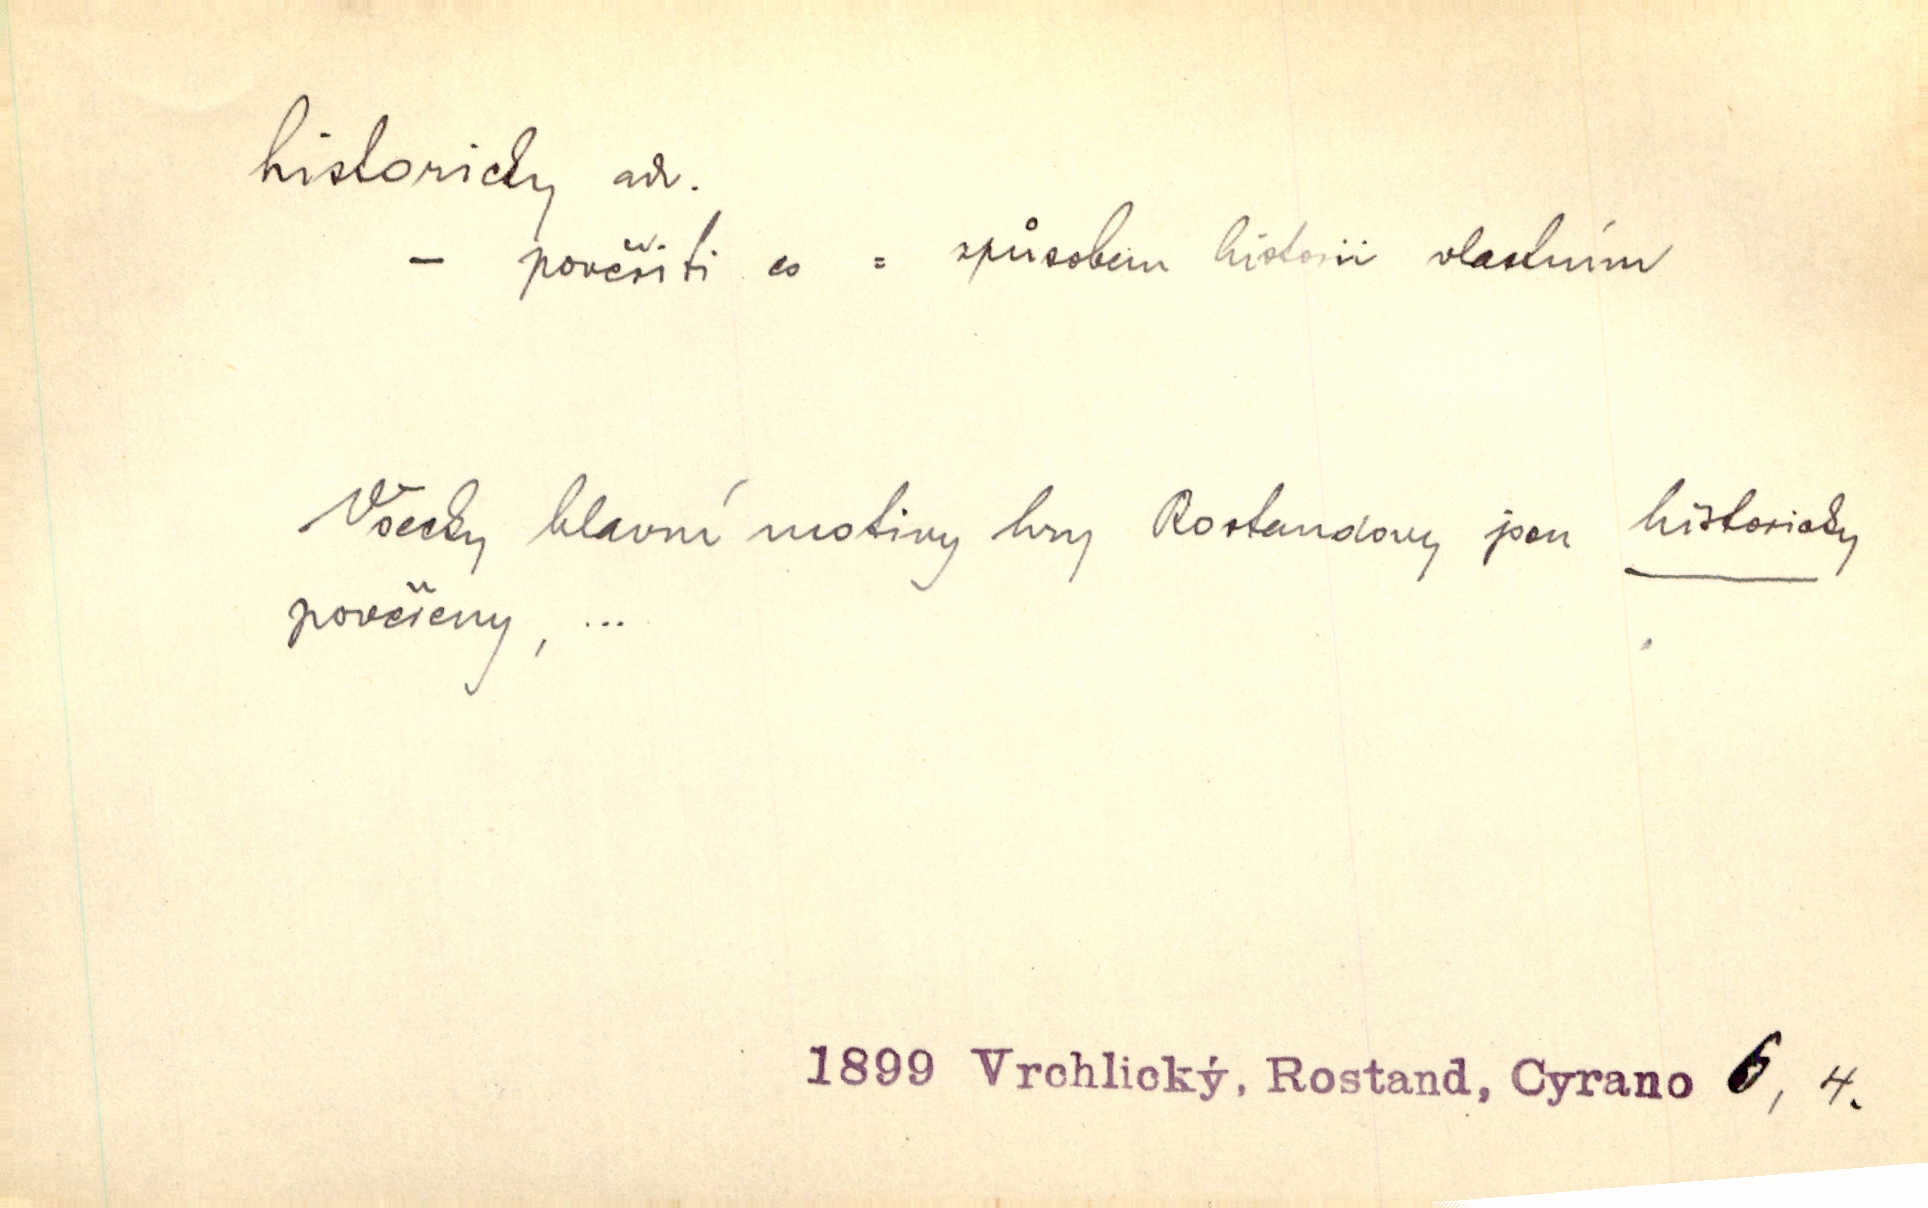 historicky adv.
– pověřiti co = způsobem historii vlastním
Všecky hlavní motivy hry Rostandovy jsou historicky
pověřeny, ...
1899 Vrchlický, Rostand, Cyrano 6, 4.